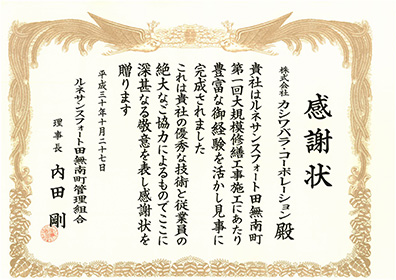 感謝状
株式会社 カシワバラ・コーポレーション 殿
貴社はルネサンスフォート田無南町
第一回大規模修繕工事施工にあたり
豊富な御経験を活かし見事に
完成されました
これは貴社の優秀な技術と従業員の
絶大なご協力によるものでここに
深甚なる敬意を表し感謝状を
贈ります
平成三十年十月二十七日
ルネサンスフォート田無南町管理組合
理事長 内田 剛